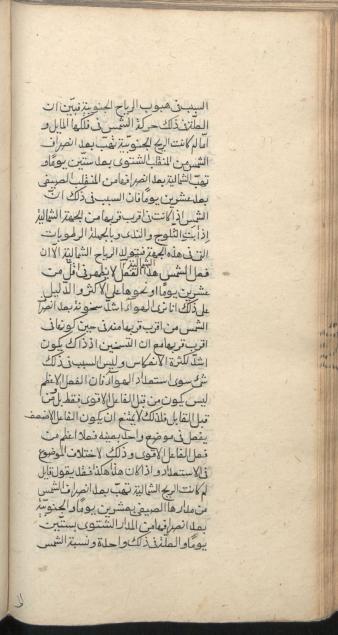 السبب فى هبوب الرياح الجنوبية فبيّن ان
العلّة فى ذلك حركة الشمس فى فلكها المايل و
امّا لم كانت الريح الجنوبيّة تهبّ بعد انصراف
الشمس من المنقلب الشتوى بعد ستين يوما و
تهبّ الشمالية بعد انصرافها من المنقلب الصيفى
بعد عشرين يوما فان السبب فى ذلك انّ
الشمس اذا كانت فى اقرب قربها من الجهة الشمالية
اذابت الثلوج والندى وبالجملة الرطوبات
التى فى هذه الجهة فيتولد الرياح الشمالية الا ان
فعل الشمس هذا الفعل لا يظهر فى اقلّ من
الشمالية
عشرين يوما و نحوها على الاكثر والدليل
على ذلك انا نرى الهوا اشدّ سخونة بعد انصراف
الشمس من اقرب قربها منه فى حين كونها فى
اقرب قربها مع ان التسخين اذ ذاك يكون
اشدّ لكثرة الانعكاس وليس السبب فى ذلك
شئ سوى استعداد الهواء فان الفعل الاعظم
ليس يكون من قبل الفاعل الاقوى فقط بل من
قبل القابل فلذلك لا يمتنع ان يكون الفاعل الاضعف
يفعل فى موضع واحد بعينه فعلا اعظم من
فعل الفاعل الاقوى وذلك لاختلاف الموضوع
فى الاستعداد واذا كان هذا هكذا فقد يقول قايل
لم كانت الريح الشمالية تهبّ بعد انصراف الشمس
من مدارها الصيفى بعشرين يوما والجنوبيّة
بعد انصرافها من المدار الشتوى بستّين
يوما والعلّة فى ذلك واحدة ونسبة الشمس